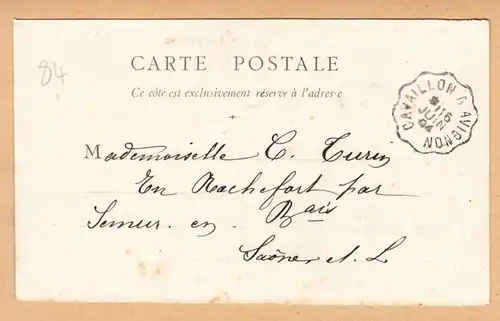 84
CARTE POSTALE
Ce côté est exclusivement réservé à l'adresse
CAVAILLON A AVIGNON
16
JUIN
04
Mademoiselle C. Turin
En Rochefort par
Bais
Semur. en.
Saône. et. L